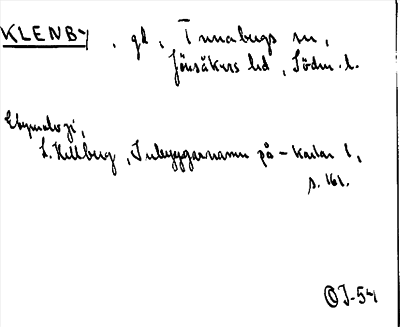 KLENBY, gd, Tunabergs sn,
Jönåkers hd, Södm. l.
Etymologi,
L. Hellberg, Inbyggarnamn på -karlar l,
s. 161.
OJ-54